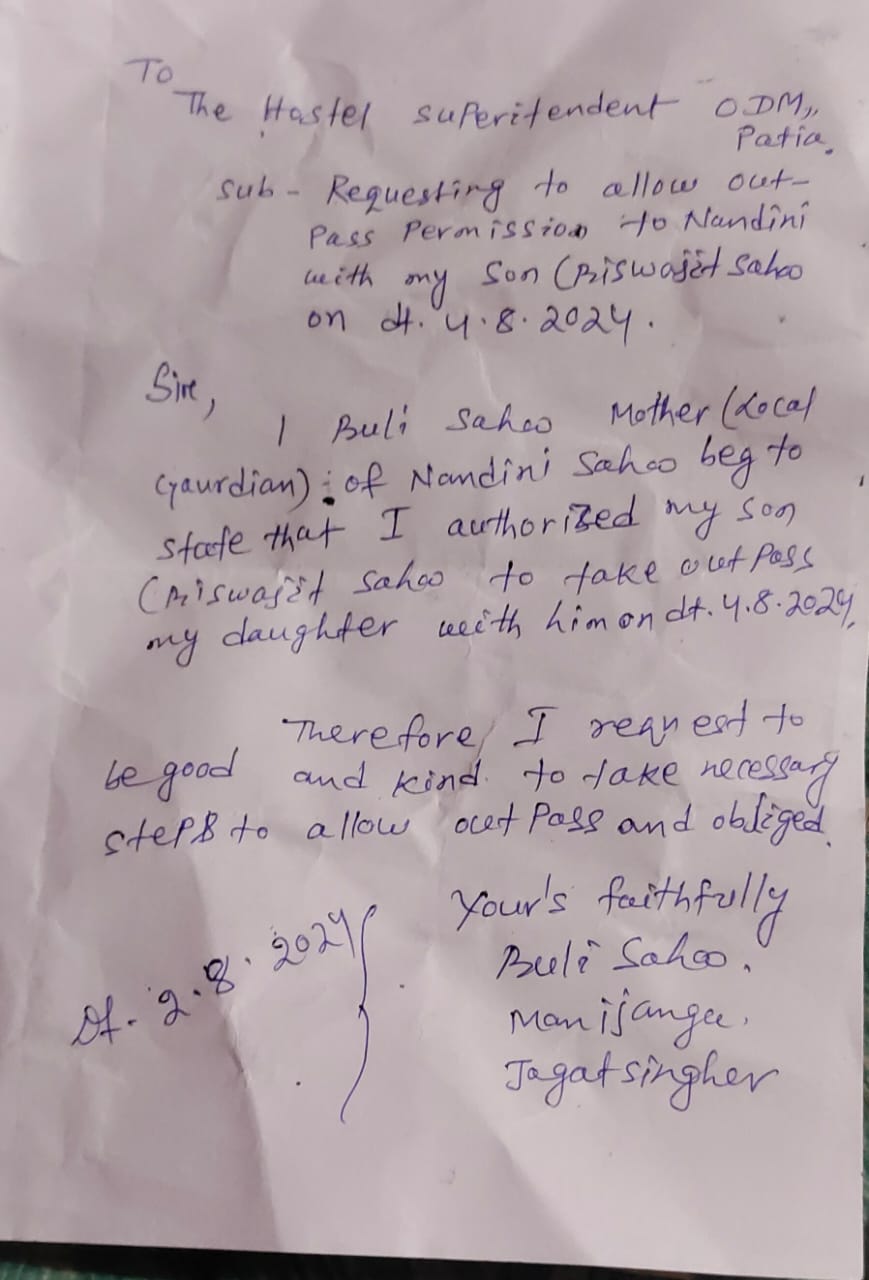 To
The Hostel superitendent ODM,,
Patia.
Sub - Requesting to allow out-
Pass Permission to Nandini
with my Son Biswajit Sahoo
on dt. 4.8.2024.
Sire,
I Buli Sahoo Mother (Local
Gaurdian) : of Nandini Sahoo beg to
state that I authorized my son
Biswajit Sahoo to take out Pass
my daughter with him on dt. 4.8.2024,
Therefore, I request to
be good and kind. to take necessary
steps to allow out Pass and obliged.
Your's faithfully
Buli Sahoo.
Manijanga.
Jagatsingher
Dt. 2.8.2024